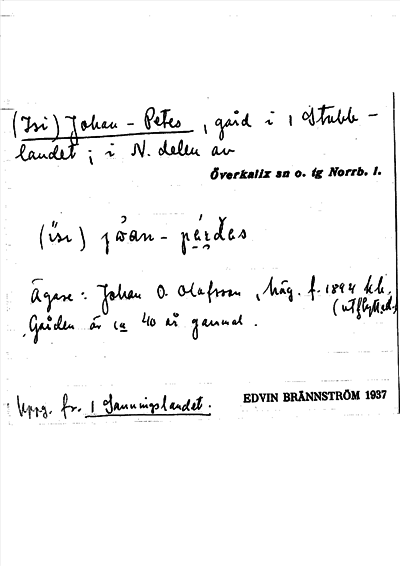 (Isi) Johan - Petes, gård i 1 Stubb-
landet; i N. delen av
Överkalix sn o. tg Norrb. l.
Ägare: Johan O. Olofsson, häg. f. 1894
(utflyttad.)
Gården är ca 40 år gammal.
Uppg. fr. 1 Sanningslandet.
EDVIN BRÄNNSTRÖM 1937